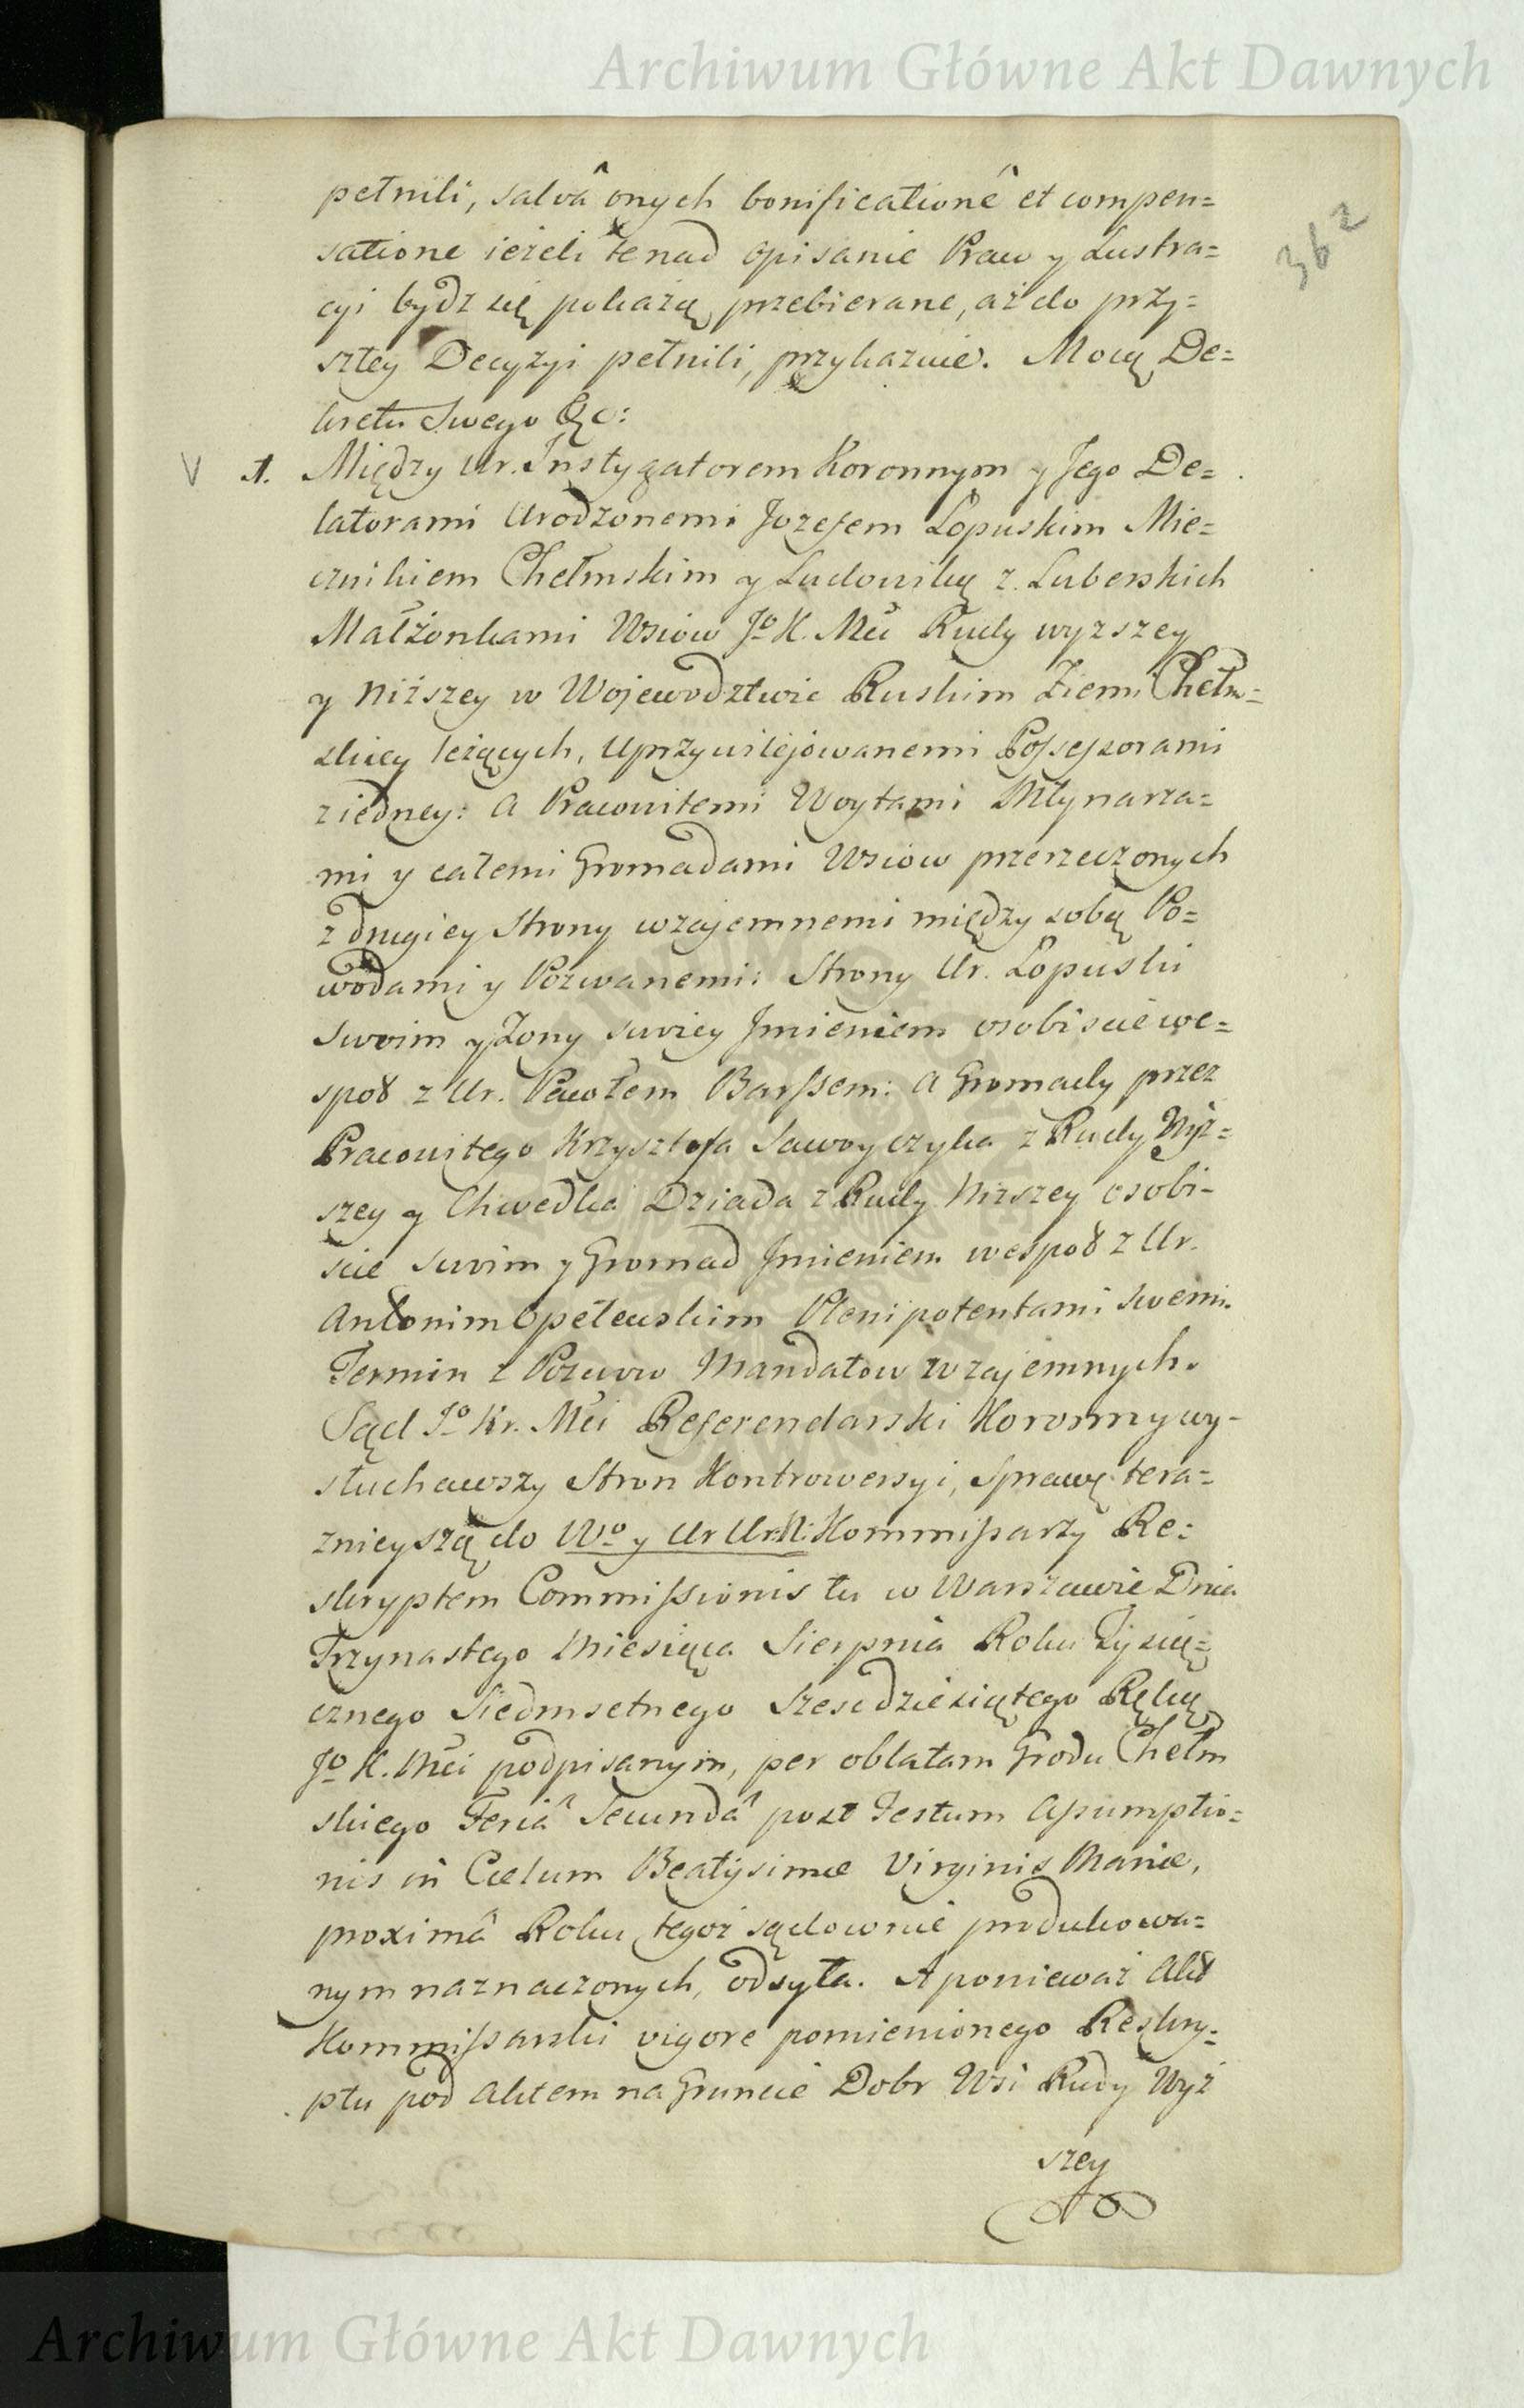 Archiwum Główne Akt Dawnych
362
pełnili, salvâ onych bonificationê et compen=
satione ieżeli te nad opisanie Praw y Lustra=
cyi bydz się pokażą przebierane, aż do przy=
szłey Decyzyi pełnili, przykazuie. Mocą De=
kretu Swego &c:
V A. Między Ur. Instygatorem Koronnym y Jego De=
latorami Urodzonemi Jozefem Łopuskim Mie=
cznikiem Chełmskim y Ludowiką z Luberskich
Małżonkami Wsiow Jº K. Mći Rudy wyzszey
y Niższey w Wojewodztwie Ruskim Ziemi Chełm=
skiey leżących, Uprzywilejowanemi Possessorami
z iedney: A Pracowitemi Woytami Młynarza=
mi y całemi Gromadami Wsiow przerzeczonych
z drugiey Strony wzajemnemi między sobą Po=
wodami y Pozwanemi: Strony Ur. Łopuski
Swoim y Żony swoiey Jmieniem osobiscie we=
społ z Ur. Pawołem Barssem: A Gromady przez
Pracowitego Krzysztofa Sawoyczyka z Rudy Wyż=
szey y Chwedka Dziada z Rudy Niższey osobi-
scie swoim y Gromad Jmieniem wespoł z Ur.
Antonim Opeleuskim Plenipotentami swemi.
Termin z Pozwow Mandatow wzajemnych.
Sąd Jº Kr. Mći Referendarski Koronny wy-
słuchawszy Stron Kontrowersyi, Sprawę tera=
znieyszą do Wº y Ur Ur: N: Kommissarzy Re=
skryptem Commissionis tu w Warszawie Dnia
Trzynastego Miesiąca Sierpnia Roku Tysią=
cznego Siedmsetnego Szescdziesiątego Ręką
Jº K. Mći podpisanym, per oblatam Grodu Chełm
skiego Feriâ Secundâ post Festum Assumptio=
nis in Cælum Beatissimæ Virginis Mariæ,
proximâ Roku tegoż sądownie produkowa=
nym naznaczonych, odsyła. A ponieważ Akt
Kommissarski vigore pomienionego Reskry=
ptu pod Aktem na Gruncie Dobr Wsi Rudy Wyż
szey
Archiwum Główne Akt Dawnych